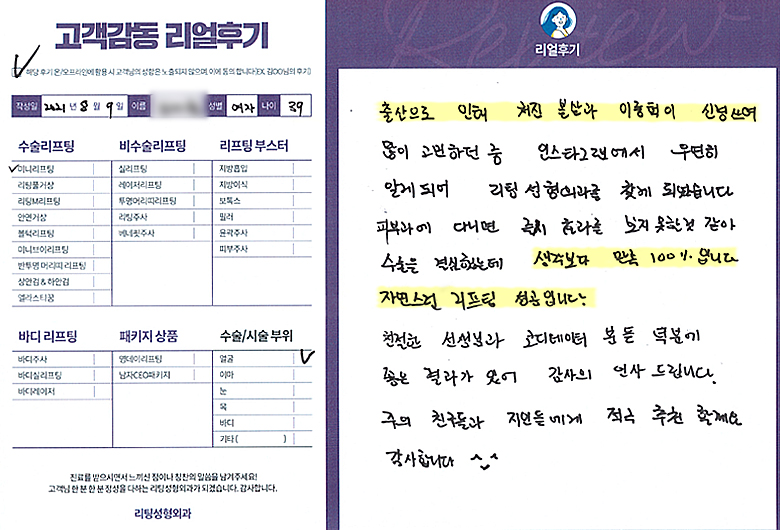 고객감동 리얼후기
해당 후기 온/오프라인에 활용 시 고객님의 성함은 노출되지 않으며, 이에 동의 합니다(EX. 김OO님의 후기)
작성일 2021년 8월 9일 이름 성별 여자 나이 39
수술리프팅
미니리프팅
리팅풀거상
리팅M리프팅
안면거상
볼턱리프팅
미니브이리프팅
반투명 머리띠 리프팅
상안검 & 하안검
엘라스티꿈
비수술리프팅
실리프팅
레이저리프팅
투명머리띠리프팅
리팅주사
베네핏주사
리프팅 부스터
지방흡입
지방이식
보톡스
필러
윤곽주사
피부주사
바디 리프팅
바디주사
바디실리프팅
바디레이저
패키지 상품
영데이리프팅
남자CEO패키지
수술/시술 부위
얼굴
이마
눈
목
바디
기타( )
진료를 받으시면서 느끼신 점이나 칭찬의 말씀을 남겨주세요!
고객님 한 분 한 분 정성을 다하는 리팅성형외과가 되겠습니다. 감사합니다.
리팅성형외과
Review
리얼후기
출산으로 인해 처진 볼살과 이중턱이 신경쓰여
많이 고민하던 중 인스타그램에서 우연히
알게되어 리팅성형외과를 찾게 되었습니다
피부과에 다니면 즉시 효과를 보지 못한것 같아
수술을 결심했는데 생각보다 만족 100% 입니다
자연스런 리프팅 성공입니다.
친절한 선생님과 코디네이터 분들 덕분에
좋은 결과가 있어 감사의 인사 드립니다.
주위 친구들과 지인들에게 적극 추천 할께요
감사합니다 ^‿^